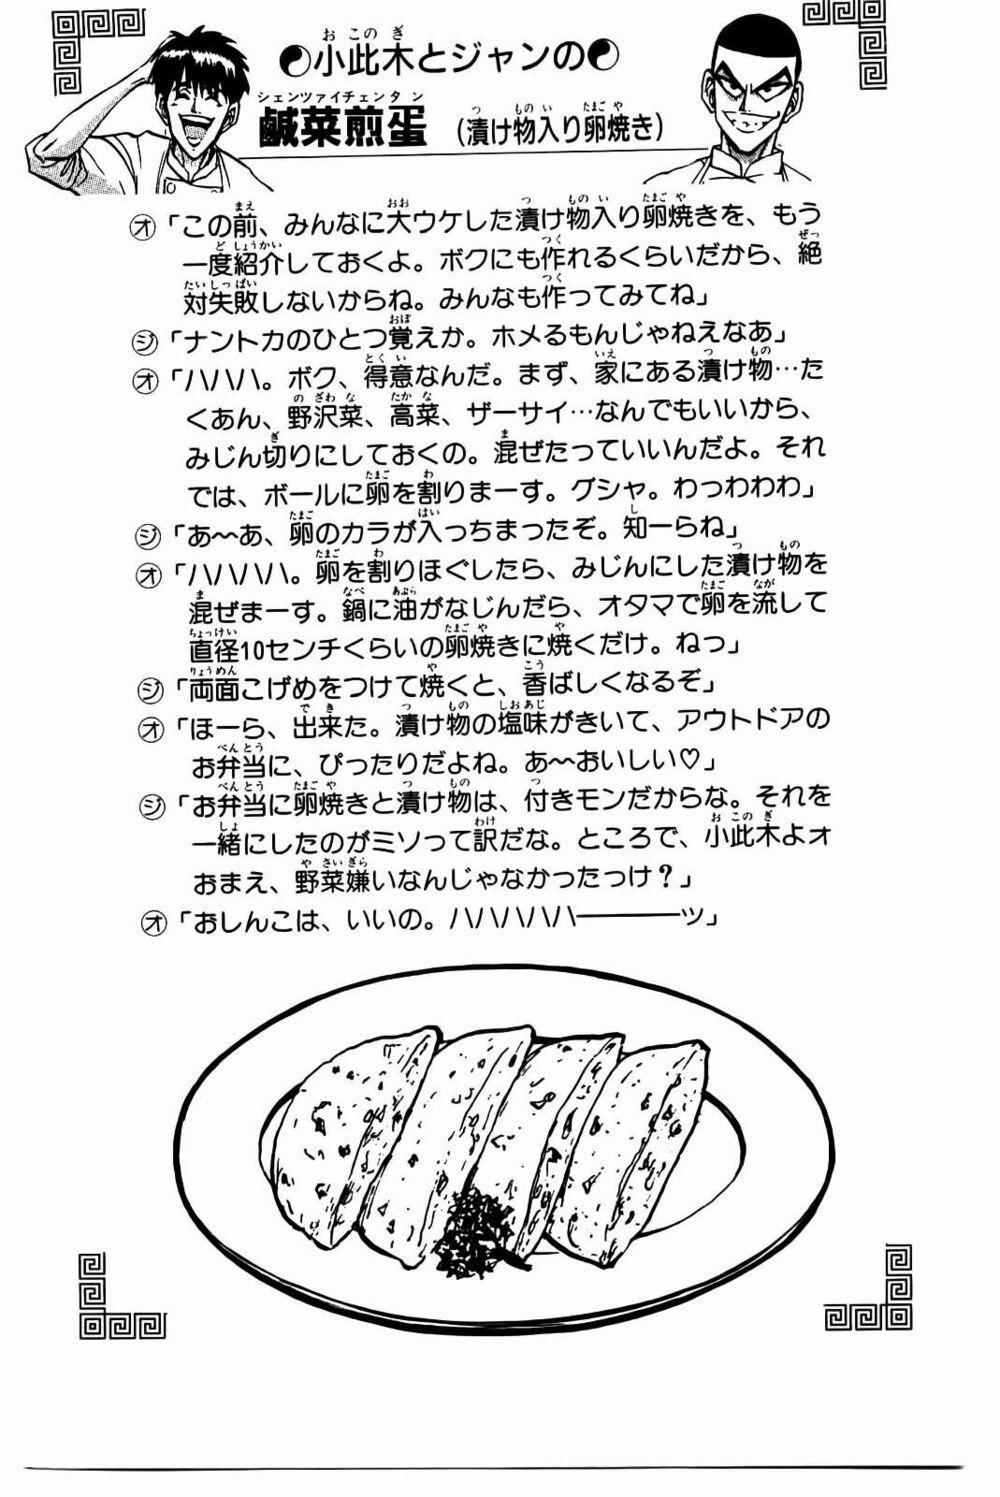 小此木とジャンの
鹹菜煎蛋(漬け物入り卵焼き)
オ「この前、みんなに大ウケした漬け物入り卵焼きを、もう
一度紹介しておくよ。ボクにも作れるくらいだから、絶
対失敗しないからね。みんなも作ってみてね」
ジ「ナントカのひとつ覚えか。ホメるもんじゃねえなあ」
オ「ハハハ。ボク、得意なんだ。まず、家にある漬け物…た
くあん、野沢菜、高菜、ザーサイ…なんでもいいから、
みじん切りにしておくの。混ぜたっていいんだよ。それ
では、ボールに卵を割りまーす。グシャ。わっわわわ」
ジ「あ〜あ、卵のカラが入っちまったぞ。知ーらね」
オ「ハハハハ。卵を割りほぐしたら、みじんにした漬け物を
混ぜまーす。鍋に油がなじんだら、オタマで卵を流して
直径10センチくらいの卵焼きに焼くだけ。ねっ」
ジ「両面こげめをつけて焼くと、香ばしくなるぞ」
オ「ほーら、出来た。漬け物の塩味がきいて、アウトドアの
お弁当に、ぴったりだよね。あ〜おいしい♡」
ジ「お弁当に卵焼きと漬け物は、付きモンだからな。それを
一緒にしたのがミソって訳だな。ところで、小此木よォ
おまえ、野菜嫌いなんじゃなかったっけ？」
オ「おしんこは、いいの。ハハハハハ————ッ」